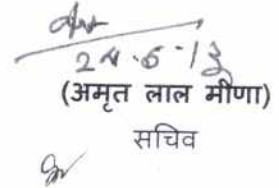 24.6.13
(अमृत लाल मीणा)
सचिव